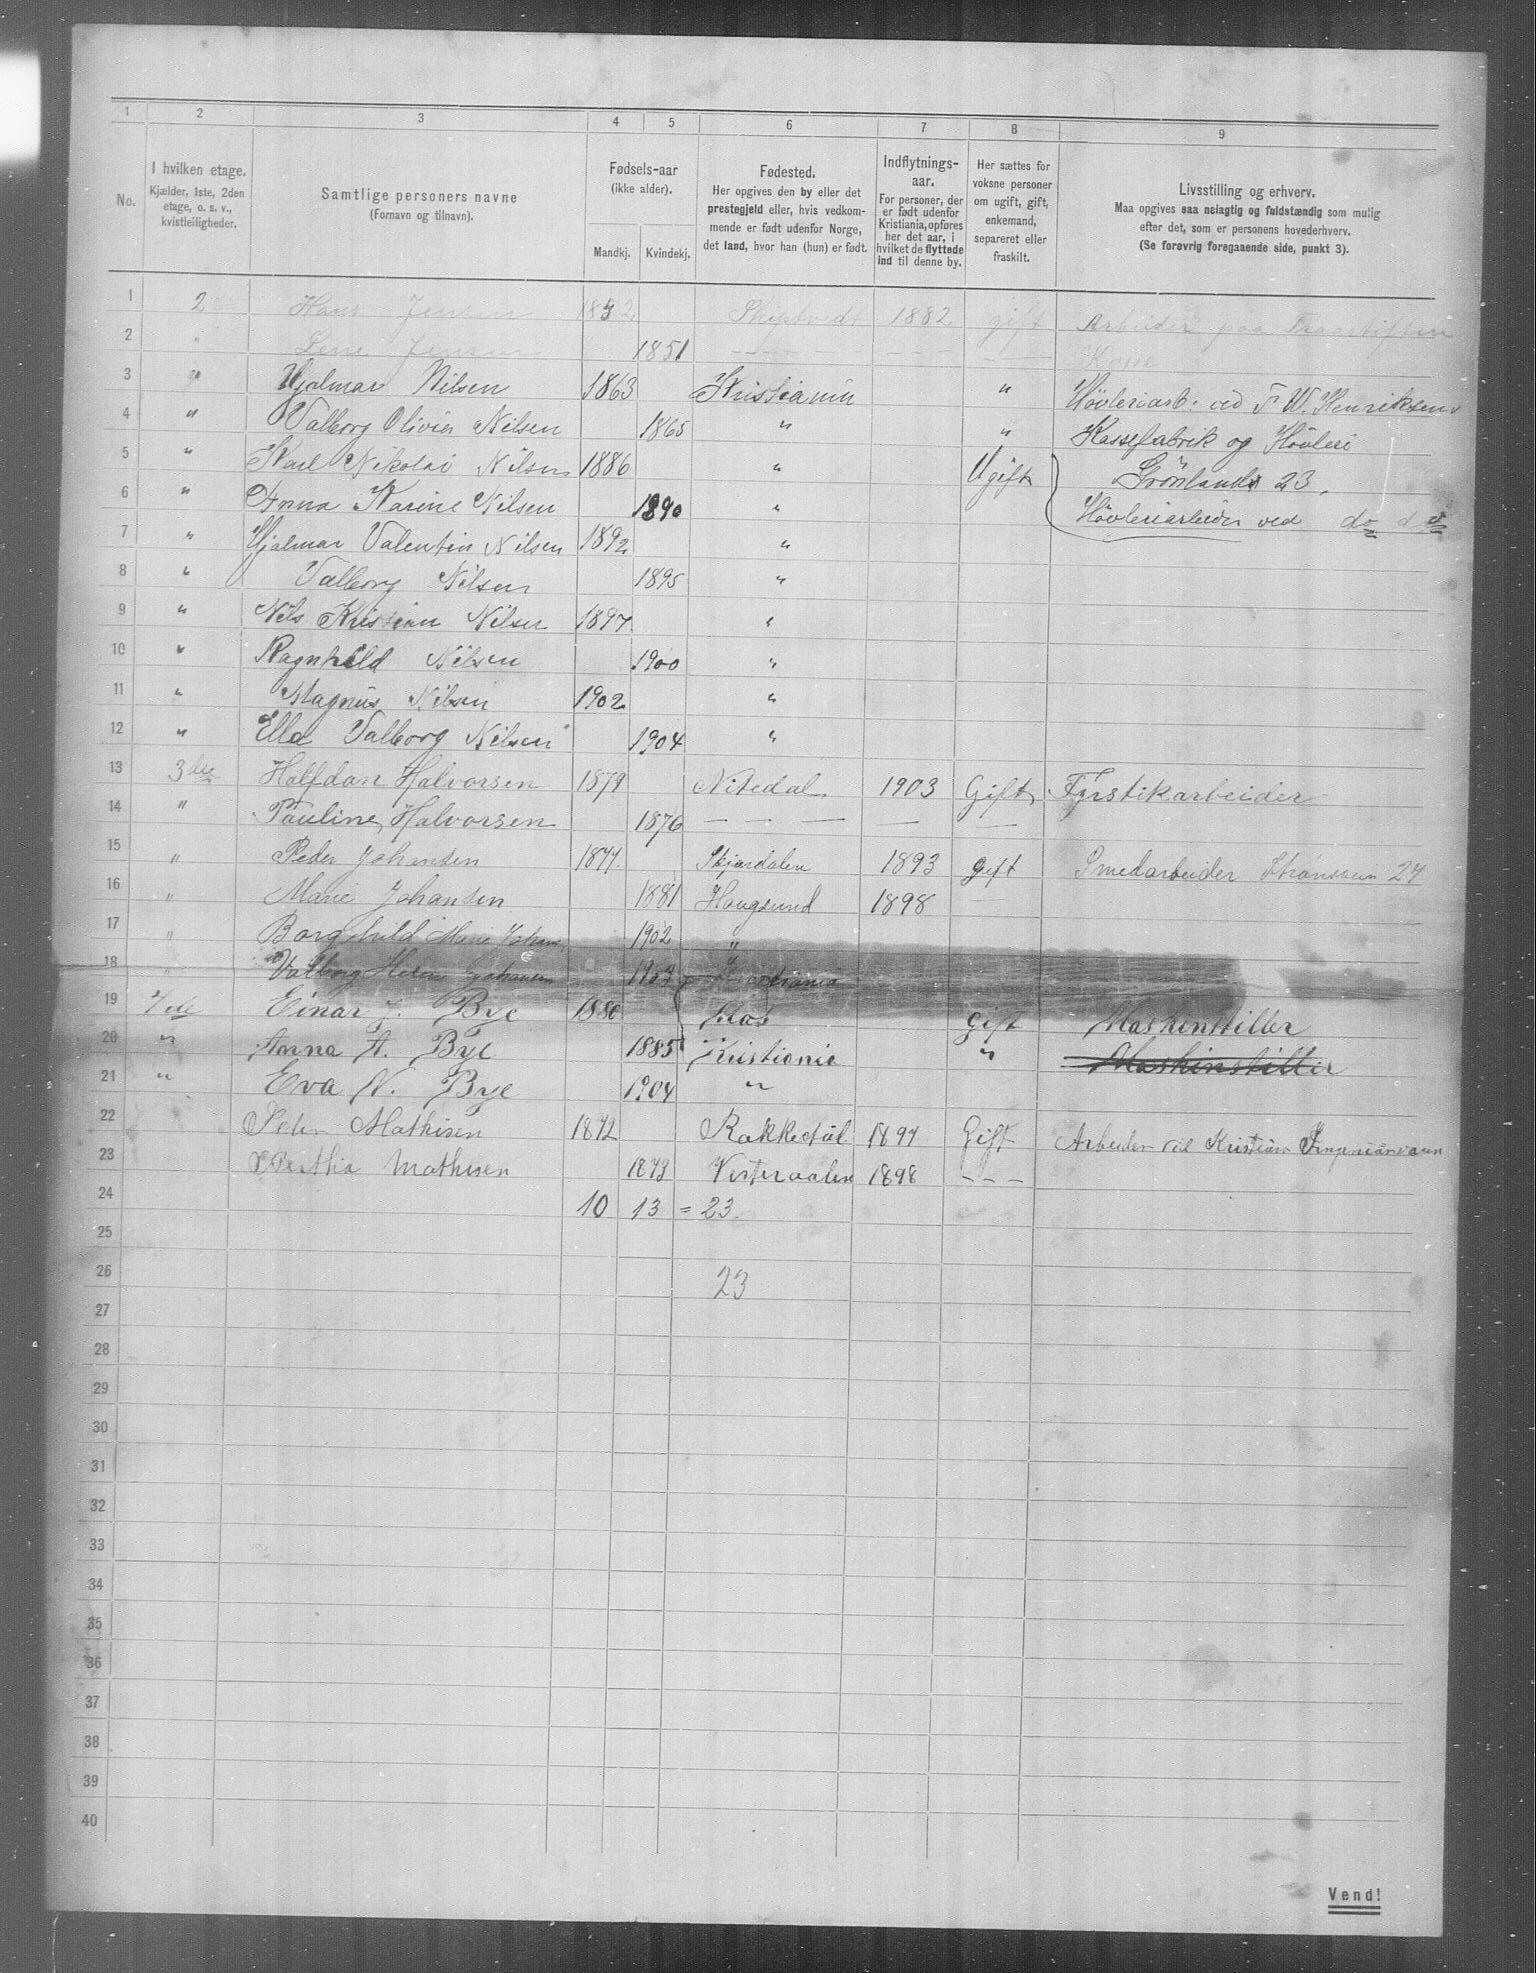 1 2 3 4 5 6 7 8 9
No.
I hvilken etage.
Kjælder, 1ste, 2den
etage, o. s. v.,
kvistleiligheder.
Samtlige personers navne
(Fornavn og tilnavn).
Fødsels-aar
(ikke alder).
Mandkj. Kvindekj.
Fødested.
Her opgives den by eller det
prestegjeld eller, hvis vedkom-
mende er født udenfor Norge,
det land, hvor han (hun) er født.
Indflytnings-
aar.
For personer, der
er født udenfor
Kristiania, opføres
her det aar, i
hvilket de flyttede
ind til denne by.
Her sættes for
voksne personer
om ugift, gift,
enkemand,
separeret eller
fraskilt.
Livsstilling og erhverv.
Maa opgives saa nøiagtig og fuldstændig som mulig
efter det, som er personens hovederhverv.
(Se forøvrig foregaaende side, punkt 3).
1 2 Hans Jensen Skiptvedt 1882 gift Arbeider paa
2 " Lene Jensen 1851 — — — — — —
3 " Hjalmar Nilsen 1863 Kristiania " Høvleriarb. ved F W. Henriksens
4 " Valborg Olivia Nilsen 1865 " " Kassefabrik og Høvleri
5 " Karl Nikolai Nilsen 1886 " Ugift Grønland 23.
6 " Anna Karine Nilsen 1890 " Høvleriarbeider ved do do
7 " Hjalmar Valentin Nilsen 1892 "
8 " Valborg Nilsen 1895 "
9 " Nils Kristian Nilsen 1897 "
10 " Ragnhild Nilsen 1900 "
11 " Magnus Nilsen 1902 "
12 " Ella Valborg Nilsen 1904 "
13 3die Halfdan Halvorsen 1879 Nitedal 1903 Gift Fyrstikarbeider
14 " Pauline Halvorsen 1876 — — — — —
15 " Peder Johansen 1877 Skjærdalen 1893 gift Smedarbeider 27
16 " Marie Johansen 1881 Hougsund 1898 —
17 " Borghild Marie Johans. 1902 "
18 " Valborg Helene Johansen 1903 Kristiania
19 Einar J. Bye 1880 Gift Maskinstiller
20 " Anna A. Bye 1885 Kristiania " Maskinstiller
21 " Eva N. Bye 1904 "
22 Peter Mathisen 1872 Rakkestal 1897 Gift Arbeider ved Kristian
23 Berthia Mathisen 1873 Vesteraalen 1898 — — —
24 10 13 = 23.
25
26 23
27
28
29
30
31
32
33
34
35
36
37
38
39
40
Vend!